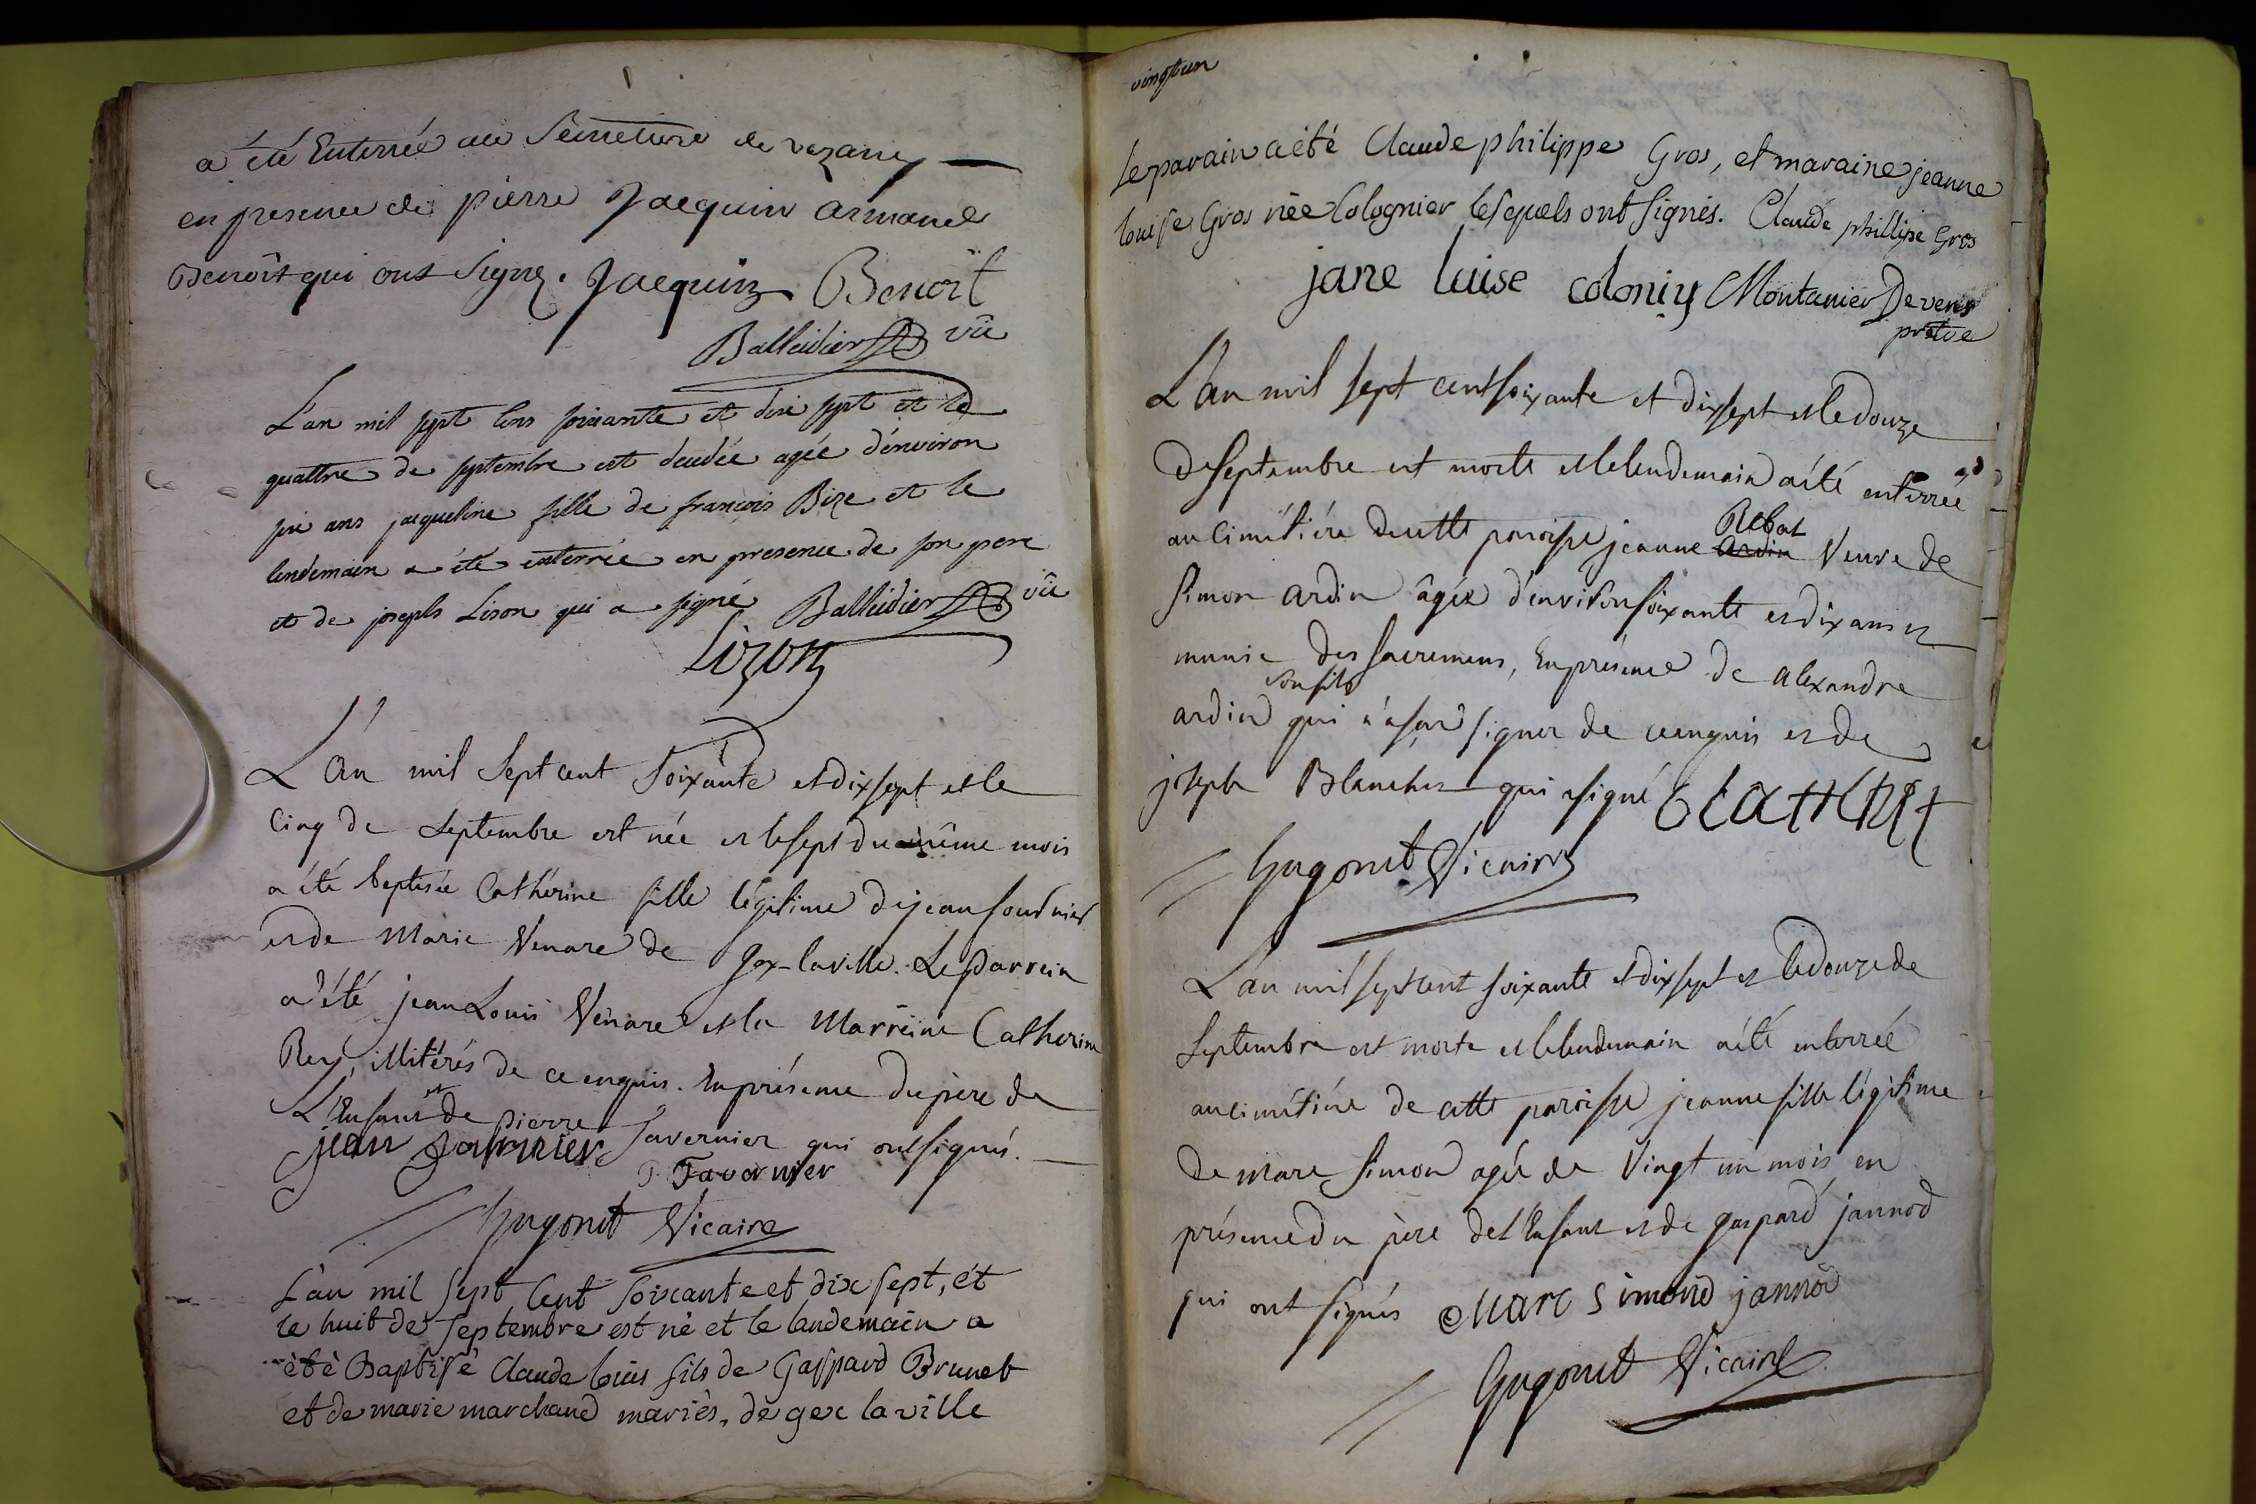 a été Enterrée au Semeture de vezanne
en presence de pierre Jacquin armand
Benoit qui ont signé. Jacquin Benoit
Balleidier vic
L'an mil sept cens soixante et dix sept et le
quattre de septembre est decedée agée d'environ
six ans jacqueline fille de francois Bize et le
lendemain a été enterrée en presence de son pere
et de joseph Lison qui a signé Balleidier vic
Lizon
L'an mil sept cent soixante et dix sept et le
Cinq de septembre est née et le sept du même mois
a été baptisée Catherine fille légitime de jean fournier
et de Marie Venare de Gex-laville. Le parrein
a été jean Louis Venare et la Marreine Catherine
Rey, illitérés de ce enquis. En présence du père de
L'Enfant et de pierre Tavernier qui ont signés.
jean fournier
P. Tavernier
Hugonet Vicaire
L'an mil sept cent soixante et dix sept, et
le huit de septembre est né et le landemain a
été Baptisé Claude louis fils de Gaspard Brunet
et de marie marchand mariés, de gex la ville
vingt un
le parain a été Claude philippe Gros, et maraine jeanne
louise Gros née Colognier lesquels ont signés. Claude phillipe Gros
jane luise coloniy Montanier Devens
pretre
L'an mil sept cent soixante et dixsept et le douze
de septembre est morte et le lendemain a été enterrée
au cimétiére de cette paroisse jeanne Rebat Ardin Veuve de
simon ardin âgée d'environ soixante et dix ans et
munie des sacremens, En présence de alexandre
ardin son fils qui n'a scu signer de ce enquis et de
joseph Blanchet qui a signé
Hugonet Vicaire
L'an mil sept cent soixante et dix sept et le douze de
septembre est morte et le lendemain a été enterrée
au cimétiére de cette paroisse jeanne fille légitime
de marc simon agée de vingt un mois en
présence du père de l'Enfant et de gaspard jannod
qui ont signés Marc Simond jannod
Hugonet Vicaire